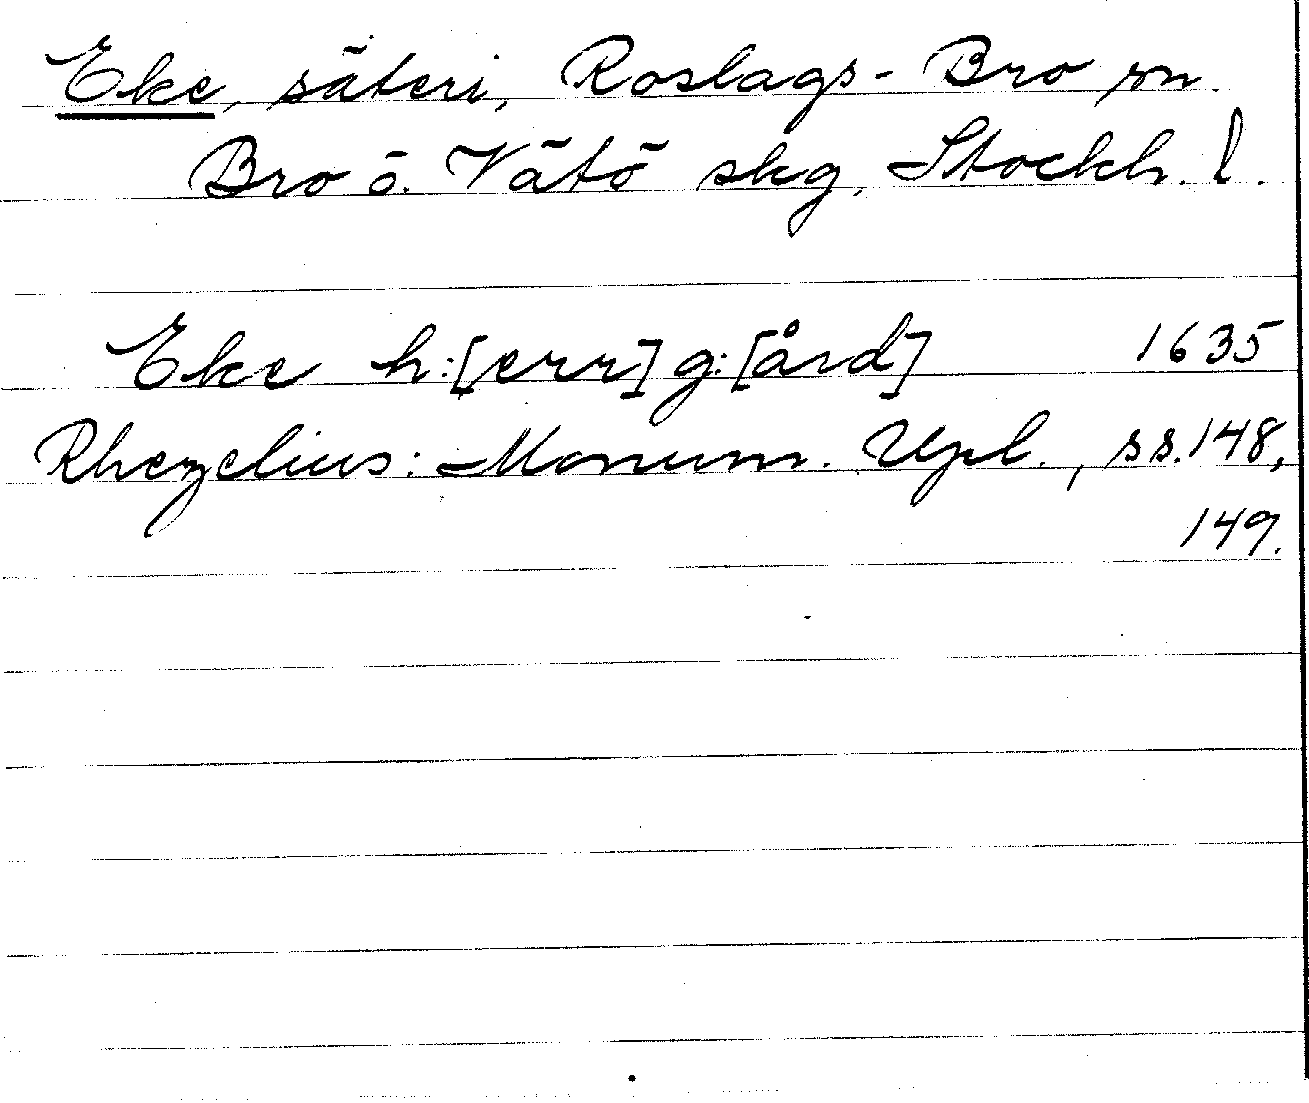 Eke, säteri, Roslags-Bro sn.
Bro o. Vätö skg, Stockh. l.
Eke h:[err]g:[ård] 1635
Rhezelius: Monum. Upl., ss. 148,
149.